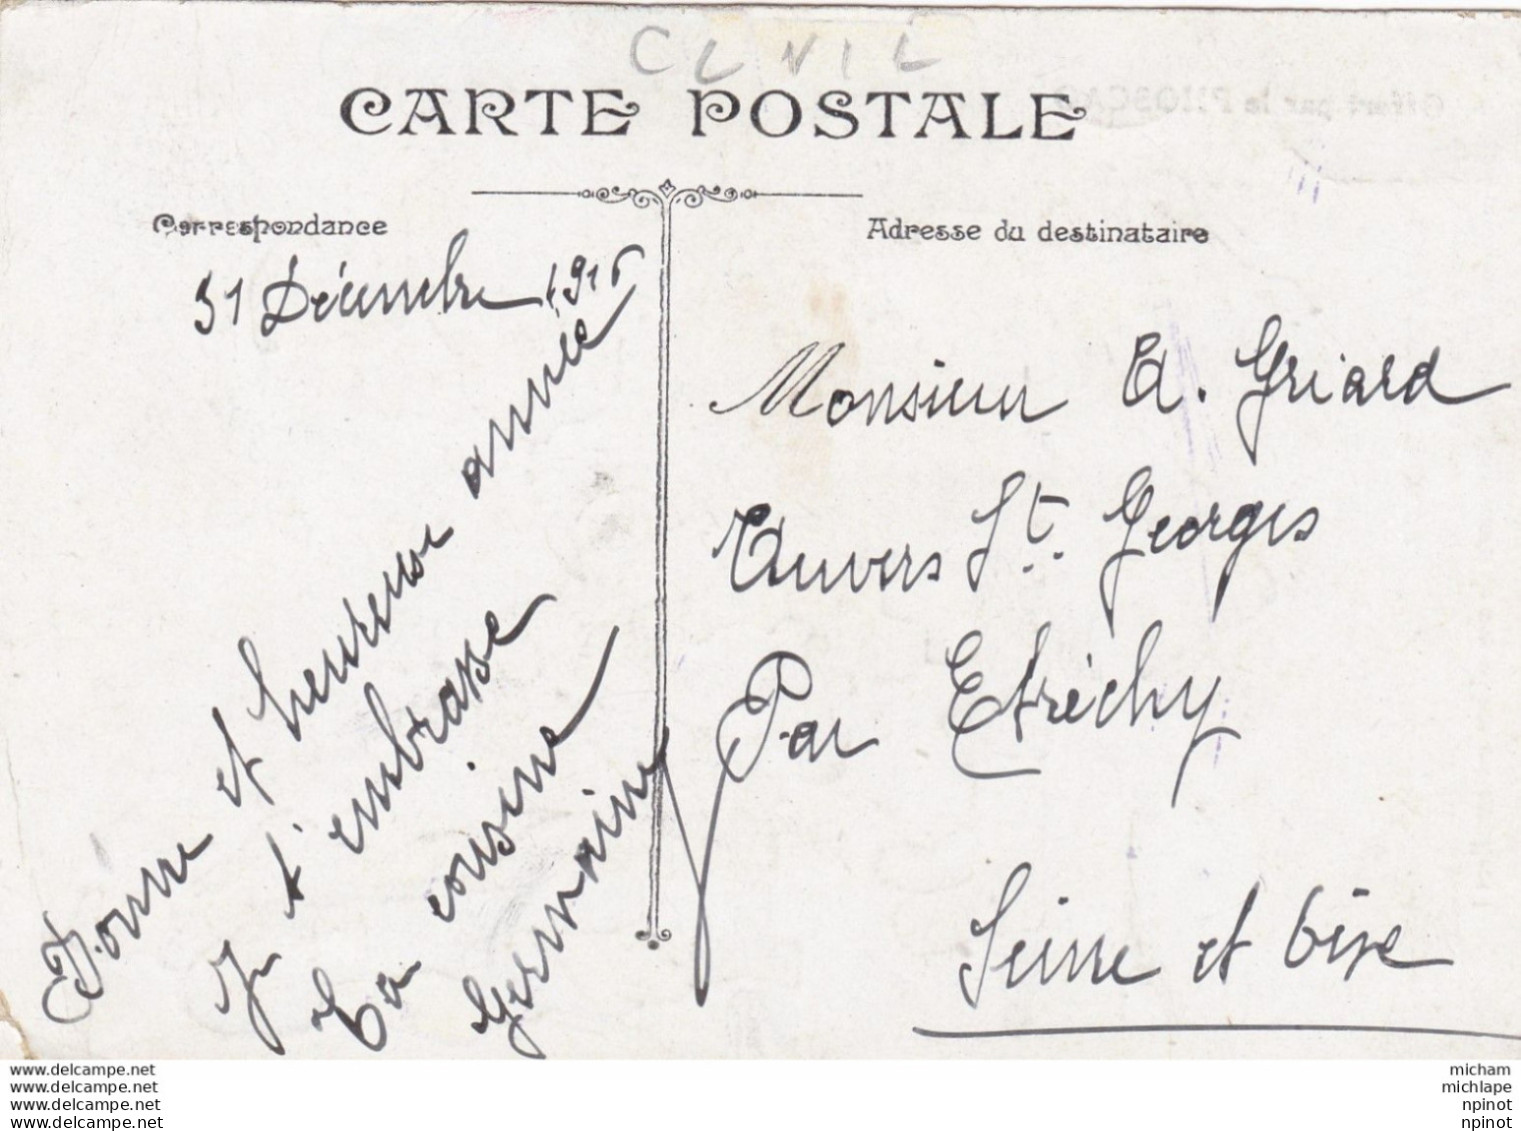 CLVIL
CARTE POSTALE
Offert par le PHOSCAO
Correspondance
Adresse du destinataire
31 Décembre 1916
Bonne et heureuse année
Je t'embrasse
Ta cousine
Germaine
Monsieur A. Griard
Auvers St. Georges
Par Etréchy
Seine et Oise
www.delcampe.net
www.delcampe.net
www.delcampe.net
www.delcampe.net
micham
michlape
npinot
npinot